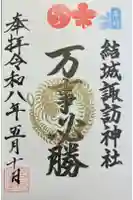 結城諏訪神社
万事必勝
奉拝令和八年五月十日